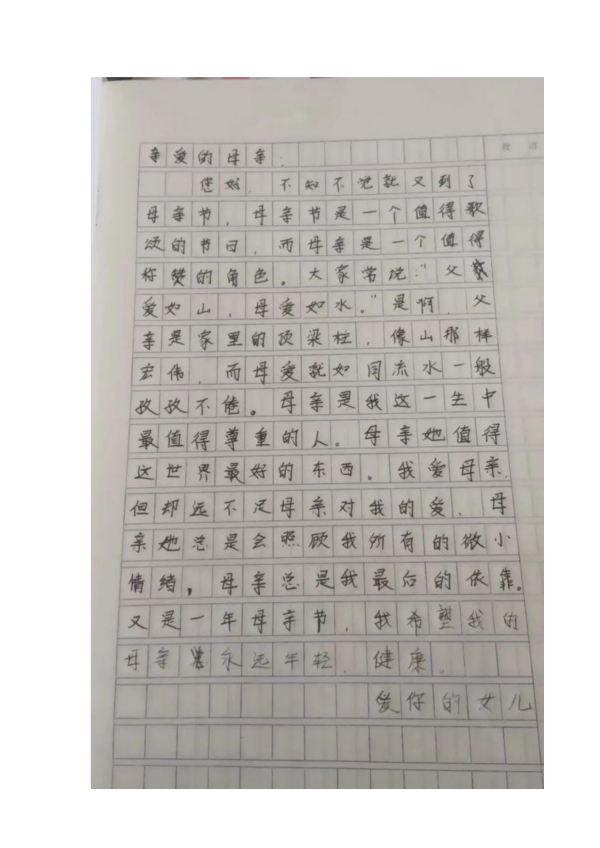 亲爱的母亲：
您好，不知不觉就又到了
母亲节，母亲节是一个值得歌
颂的节日，而母亲是一个值得
称赞的角色。大家常说："父
爱如山，母爱如水。"是啊，父
亲是家里的顶梁柱，像山那样
宏伟，而母爱就如同流水一般
孜孜不倦。母亲是我这一生中
最值得尊重的人。母亲她值得
这世界最好的东西。我爱母亲，
但却远不足母亲对我的爱，母
亲她总是会照顾我所有的微小
情绪，母亲总是我最后的依靠。
又是一年母亲节，我希望我的
母亲永远年轻、健康。
爱你的女儿